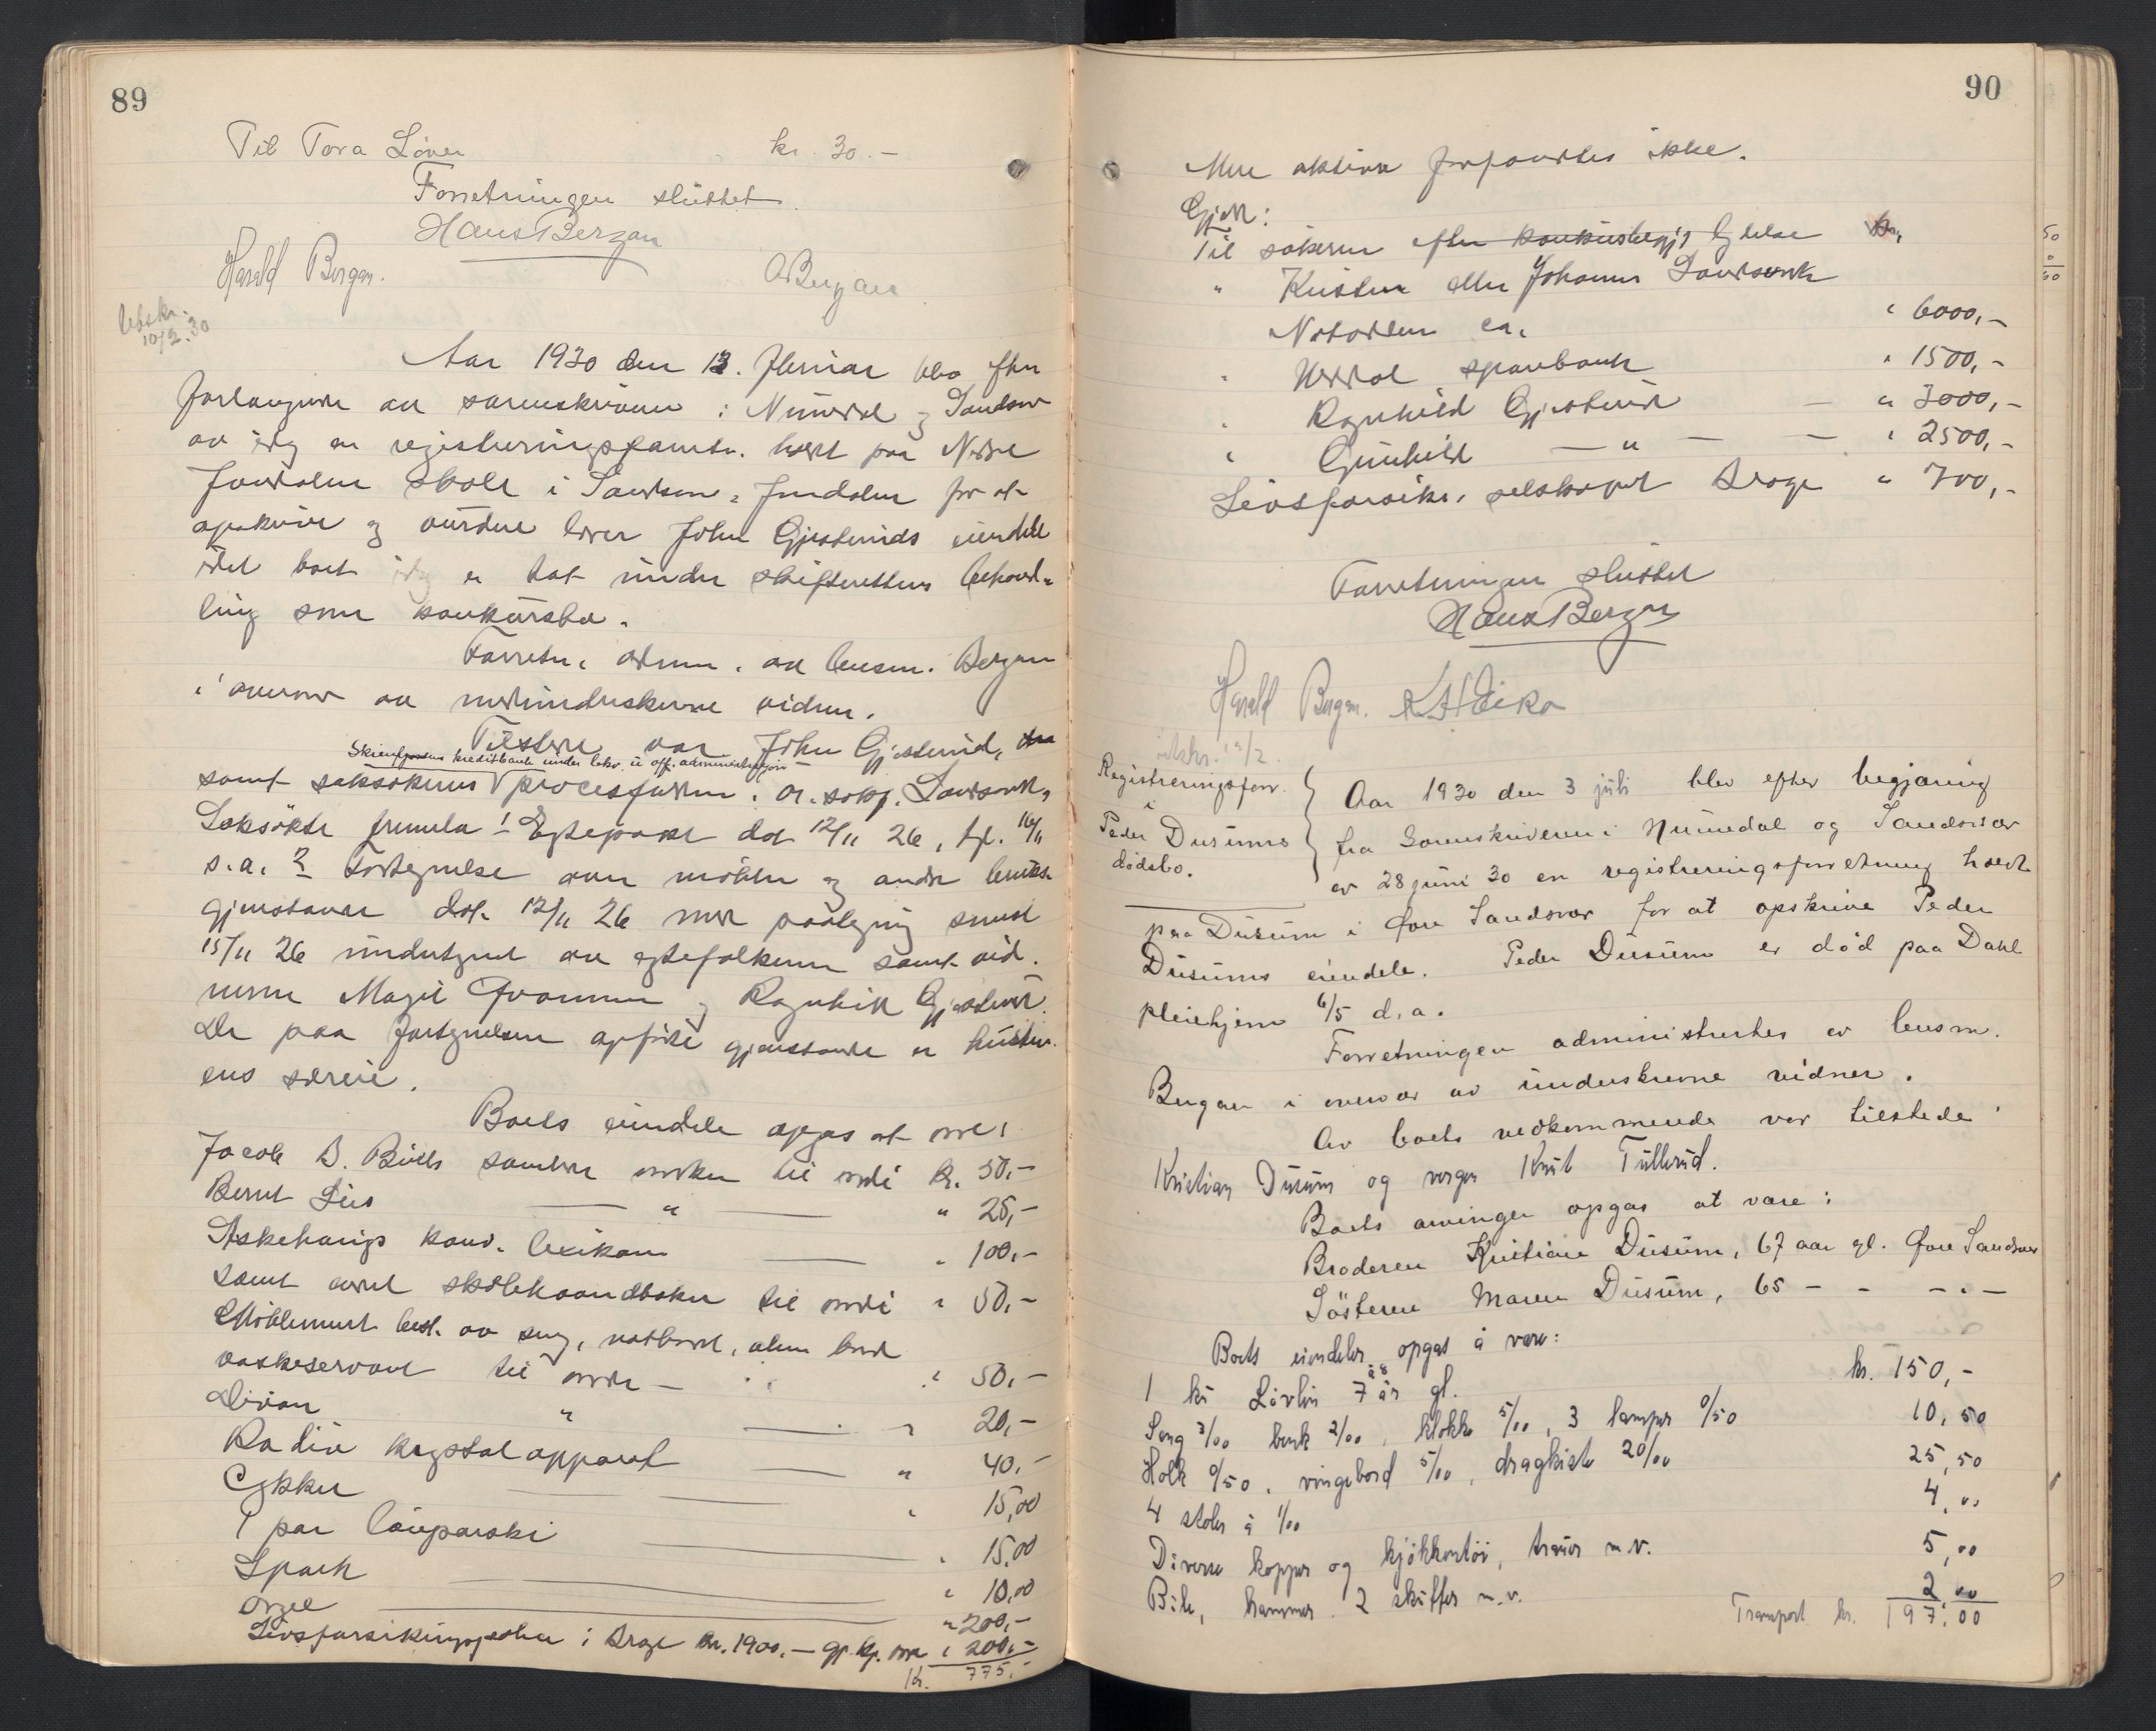 89
Til Tora Löver kr. 30.-
Forretningen sluttet.
Hans Bergan
Harald Bergan. OBergan
Utskr. 10/2.30
Aar 1930 den 13. februar blev efter
forlangende av sorenskriveren i Numedal og Sandsvær
av idag en registreringsforretn. holdt paa Nedre
Jondalen skole i Sandsvær, Jondalen for at
opskrive og vurdere lærer John Gjesteruds eiendele
idet boet idag er tat under skifterettens behand-
ling som konkursbo.
Forretn. adm. av lensm. Bergan
i overvær av nedenunderskrevne vidner.
Tilstede var John Gjesterud,
Skiensfjordens kreditbank under lokv. u. off. administrasjon
samt saksökerens procesfuldm. o.r.sakf. Landsverk,
Saksökte fremla 1 Egtepakt dat 12/11 26, tgl. 16/11
s.a. 2 Fortegnelse over möbler og andre bruks-
gjenstander dat. 12/11 26 med paategning smst
15/11 26 undertegnet av egtefolkene samt vid-
nerne Magli Qvammen og Ragnhild Gjesterud.
De paa fortegnelsen opförte gjenstande er hustru-
ens særeie.
Boets eiendele opgas at være:
Jacob B. Bulls samlede verker til verdi kr. 50,-
Bernt Lies — " — " 25,-
Askehougs konv. lexikon — " 100,-
Samt andre skolehaandböker til verdi " 50,-
Möblement best. av seng, natbord, alm bord
vaskeservant til verdi — " 50,-
Divan " — " 20,-
Radio krystalapparat — " 40,-
Cykkel — " 15,00
1 par löiparski — " 15,00
Spark — " 10,00
Orgel — " 200,-
Livsforsikringspolice i Brage kr. 1900,- gj.kj. verd " 200,-
Kr. 775,-
90
Mere aktiva forfandtes ikke.
Gjæld:
Til sökeren efter konkursbegj. Gjelse kr.
" Kristen eller Johannes Landsverk
Notodden ca. " 6000,-
" Uvdal sparebank " 1500,-
" Ragnhild Gjesterud — " 3000,-
" Gunhild — " — — " 2500,-
Livsforsikr. selskapet Brage " 700,-
Forretningen sluttet
Hans Bergan
Harald Bergan.
utskr. 12/2.
Registreringsforr.
i
Peder Dusums
dödsbo.
Aar 1930 den 3 juli blev efter begjæring
fra Sorenskriveren i Numedal og Sandsvær
av 28 juni 30 en registreringsforretning holdt
paa Dusum i Övre Sandsvær for at opskrive Peder
Dusums eiendele. Peder Dusum er död paa Dahl
pleiehjem 6/5 d.a.
Forretningen administrertes av lensm.
Bergan i overvær av underskrevne vidner.
Av boets vedkommende var tilstede:
Kristian Dusum og vergen Knut Tullerud.
Boets arvinger opgas at være:
Broderen Kristian Dusum, 67 aar gl. Övre Sandsvær
Sösteren Maren Dusum, 65 - - - " -
Boets eiendeler opgas å være:
1 ku Livlin 7 år gl. kr. 150,-
Seng 3/00 benk 2/00, klokke 5/00, 3 lamper 0/50 10,50
Holk 0/50, vingebord 5/00, dragkiste 20/00 25,50
4 stoler à 1/00 4,00
Diverse kopper og kjökkentöi, trævor m.v. 5,00
Bile, hammer, 2 skuffer m.v. 2,00
Transport kr. 197,00
50
0
50